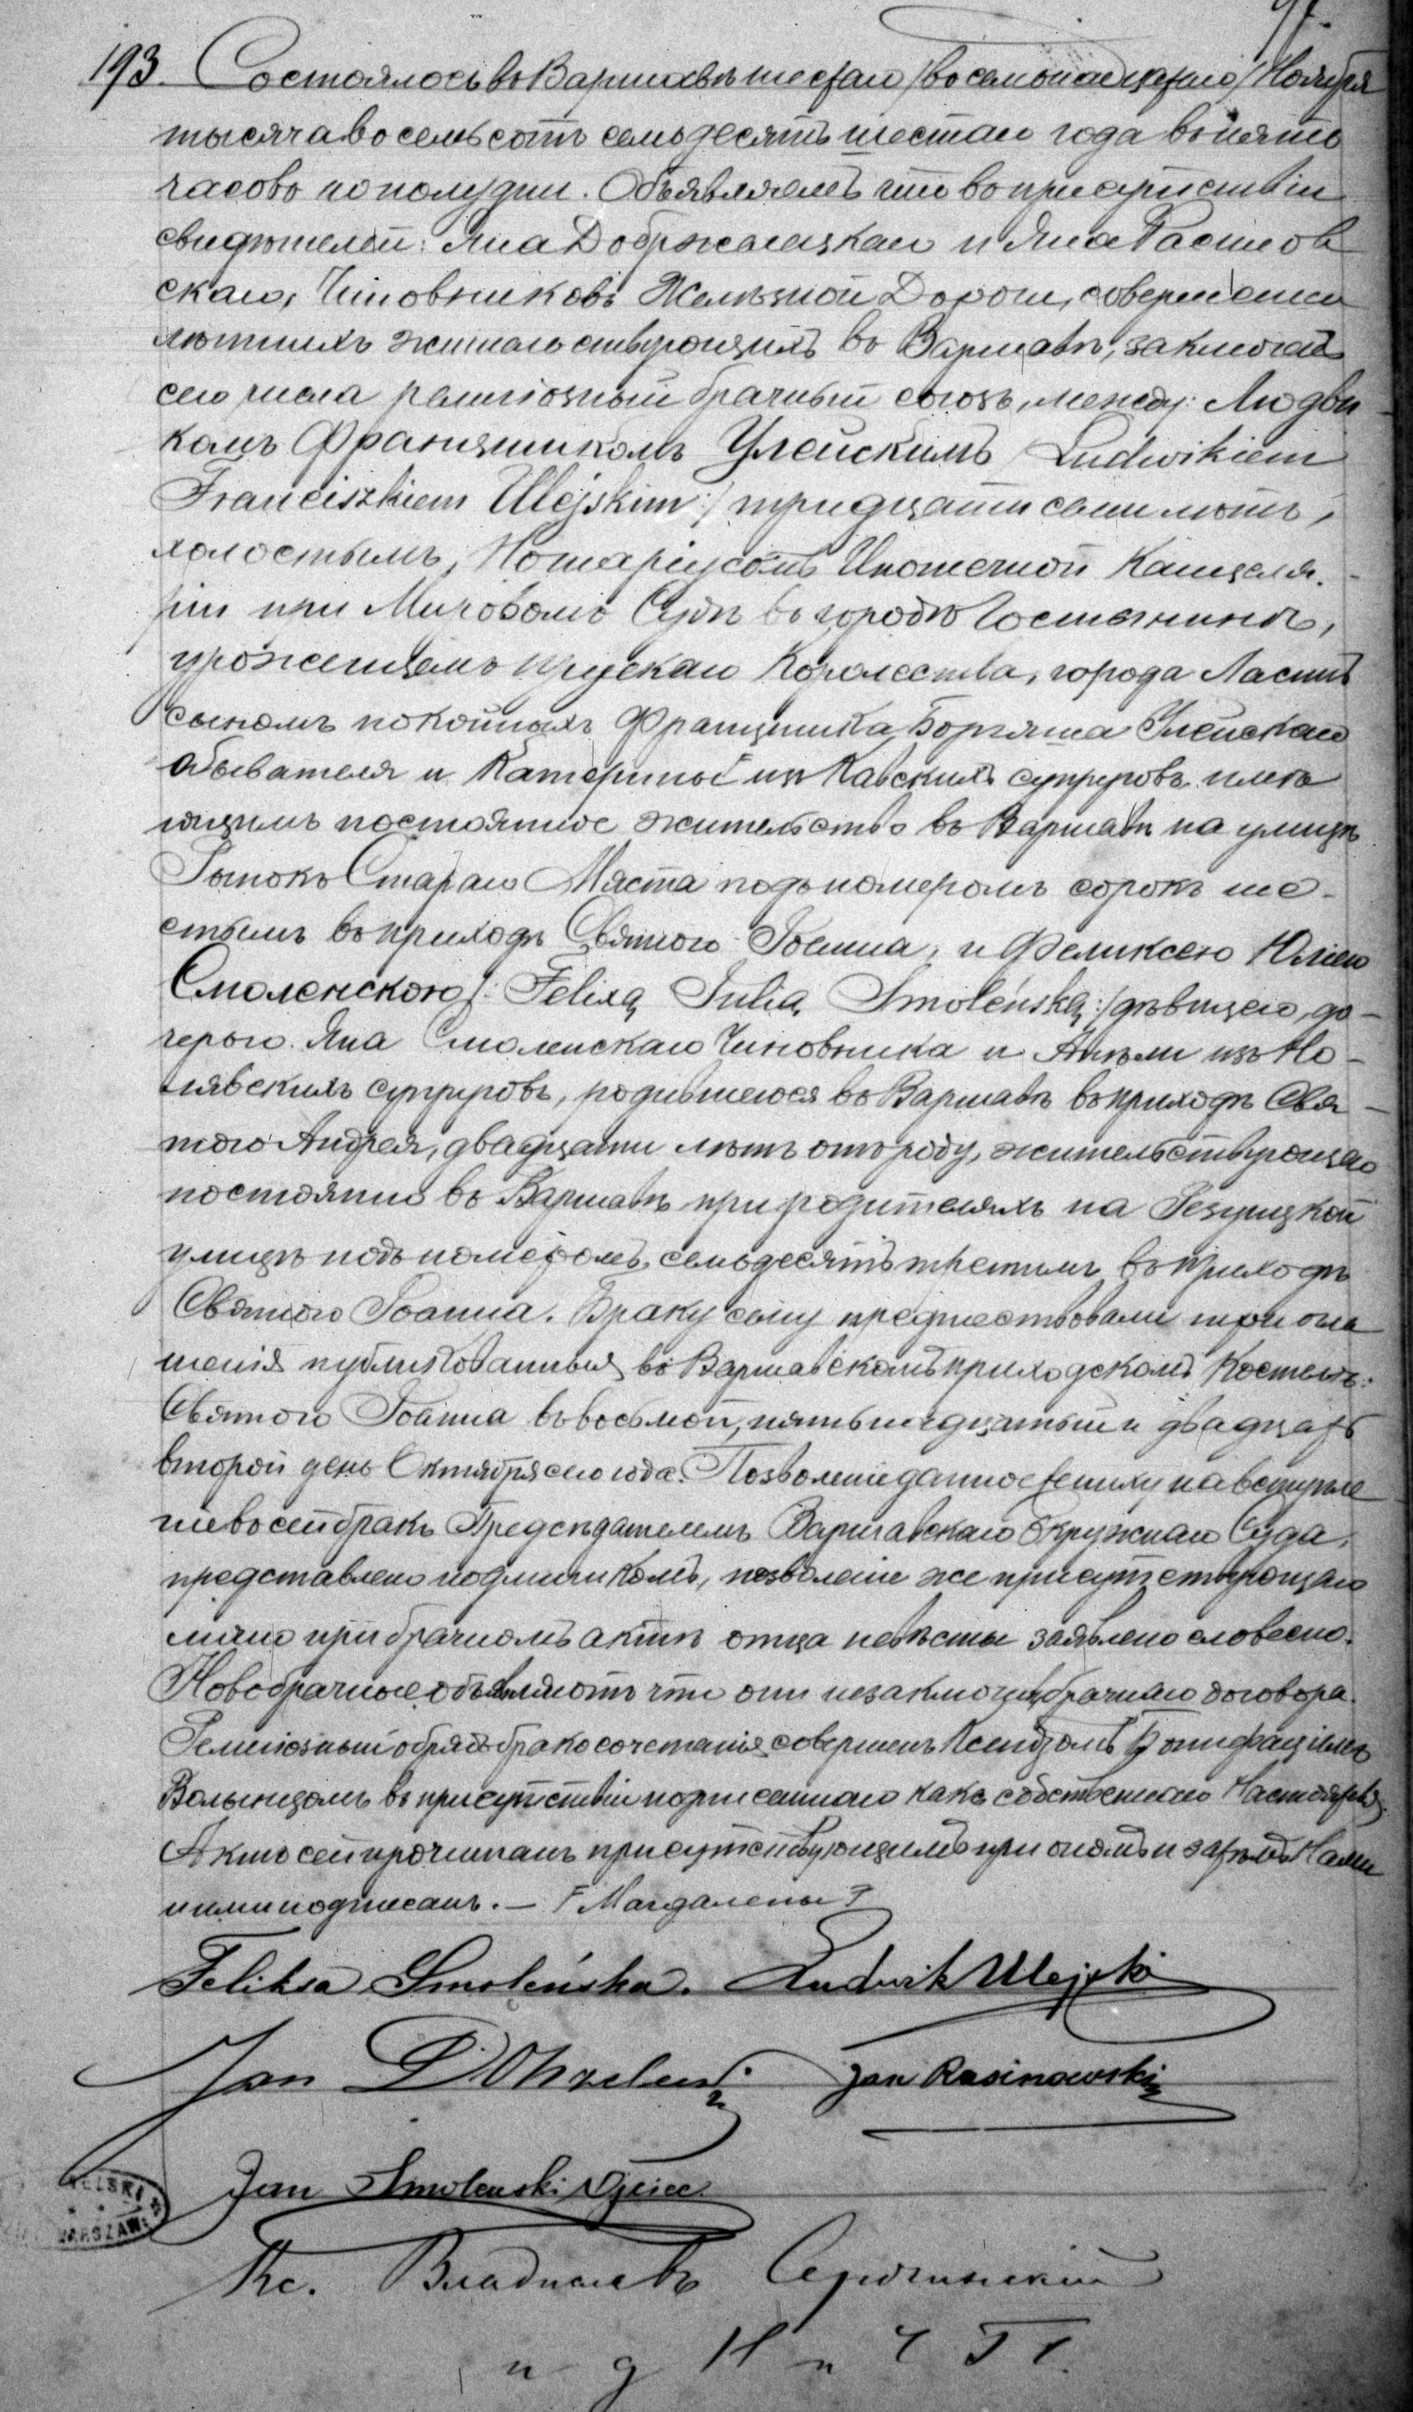 193. Состоялось въ Варшавѣ шестаго /восемнадцатаго/ Ноября
тысяча восемьсотъ семьдесятъ шестаго года въ пять
часовъ по полудни. Объявляемъ что въ присутствіи
свидѣтелей: Яна Добржелецкаго и Яна Расинов
скаго, Чиновниковъ Желѣзной Дороги, совершенно
лѣтнихъ жительствующихъ въ Варшавѣ, заключенъ
сего числа религіозный брачный союзъ, между: Людви
комъ Францишкомъ Улейскимъ /Ludwikiem
Franciszkiem Ulejskim:/ тридцати семи лѣтъ,
холостымъ, Нотаріусомъ Ипотечной Канцеля-
ріи при Мировомъ Судѣ въ городѣ Гостынинѣ,
урожденцемъ Прускаго Королества, города Ласинъ
сыномъ покойныхъ Францишка Улейскаго
Обывателя и Катерины изъ супруговъ имѣю
щимъ постоянное жительство въ Варшавѣ на улицѣ
Рынокъ Стараго Мяста подъ номеромъ сорокъ ше-
стымъ въ приходѣ Святого Іоанна, и Феликсею Юліею
Смоленскою /: Felixą Julią Smoleńską :/ дѣвицею, до-
черью Яна Смоленскаго Чиновника и Анѣли изъ
супруговъ, родившеюся въ Варшавѣ въ приходѣ Свя-
того Андрея, двадцати лѣтъ отъ роду, жительствующею
постоянно въ Варшавѣ при родителяхъ на Іезуицкой
улицѣ подъ номеромъ семьдесятъ третимъ въ приходѣ
Святого Іоанна. Браку сему предшествовали три огла
шенія публикованныя въ Варшавскомъ приходскомъ Костелѣ:
Святого Іоанна въ восьмой, пятьнадцатый и двадцать
второй день Октября сего года. Позволеніе данное жениху на вступле
ніе въ сей бракъ Предсѣдателемъ Варшавскаго Окружнаго Суда,
представлено подлинникомъ, позволеніе же присутствующаго
лично при брачномъ актѣ отца невѣсты заявлено словесно.
Новобрачные объявляютъ что они незаключили брачнаго договора.
Религіозный обрядъ бракосочетанія совершенъ Ксендзомъ Бонифаціемъ
Волынцомъ въ присутствіи подписаннаго какъ собственнаго
Актъ сей прочитанъ присутствующимъ при ономъ и затѣмъ Нами
и ими подписанъ. — Магдалены
Feliksa Smoleńska. Ludwik Ulejski
Jan Jan Rasinowski
Jan Smolenski Ojciec
Кс. Владиславъ